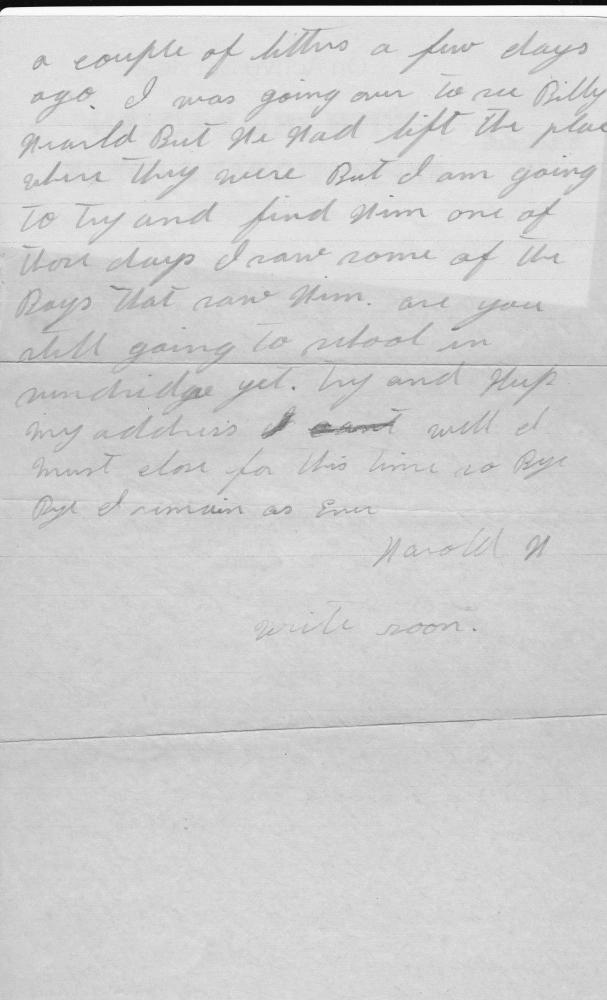 a couple of letters a few days
ago. I was going over to see Billy
But He Had left the place
where they were But I am going
to try and find Him one of
these days I saw some of the
Boys that saw Him. are you
still going to school in
yet. try and Keep
my address I cant well I
must close for this time so Bye
Bye I remain as Ever
Harold H
write soon.